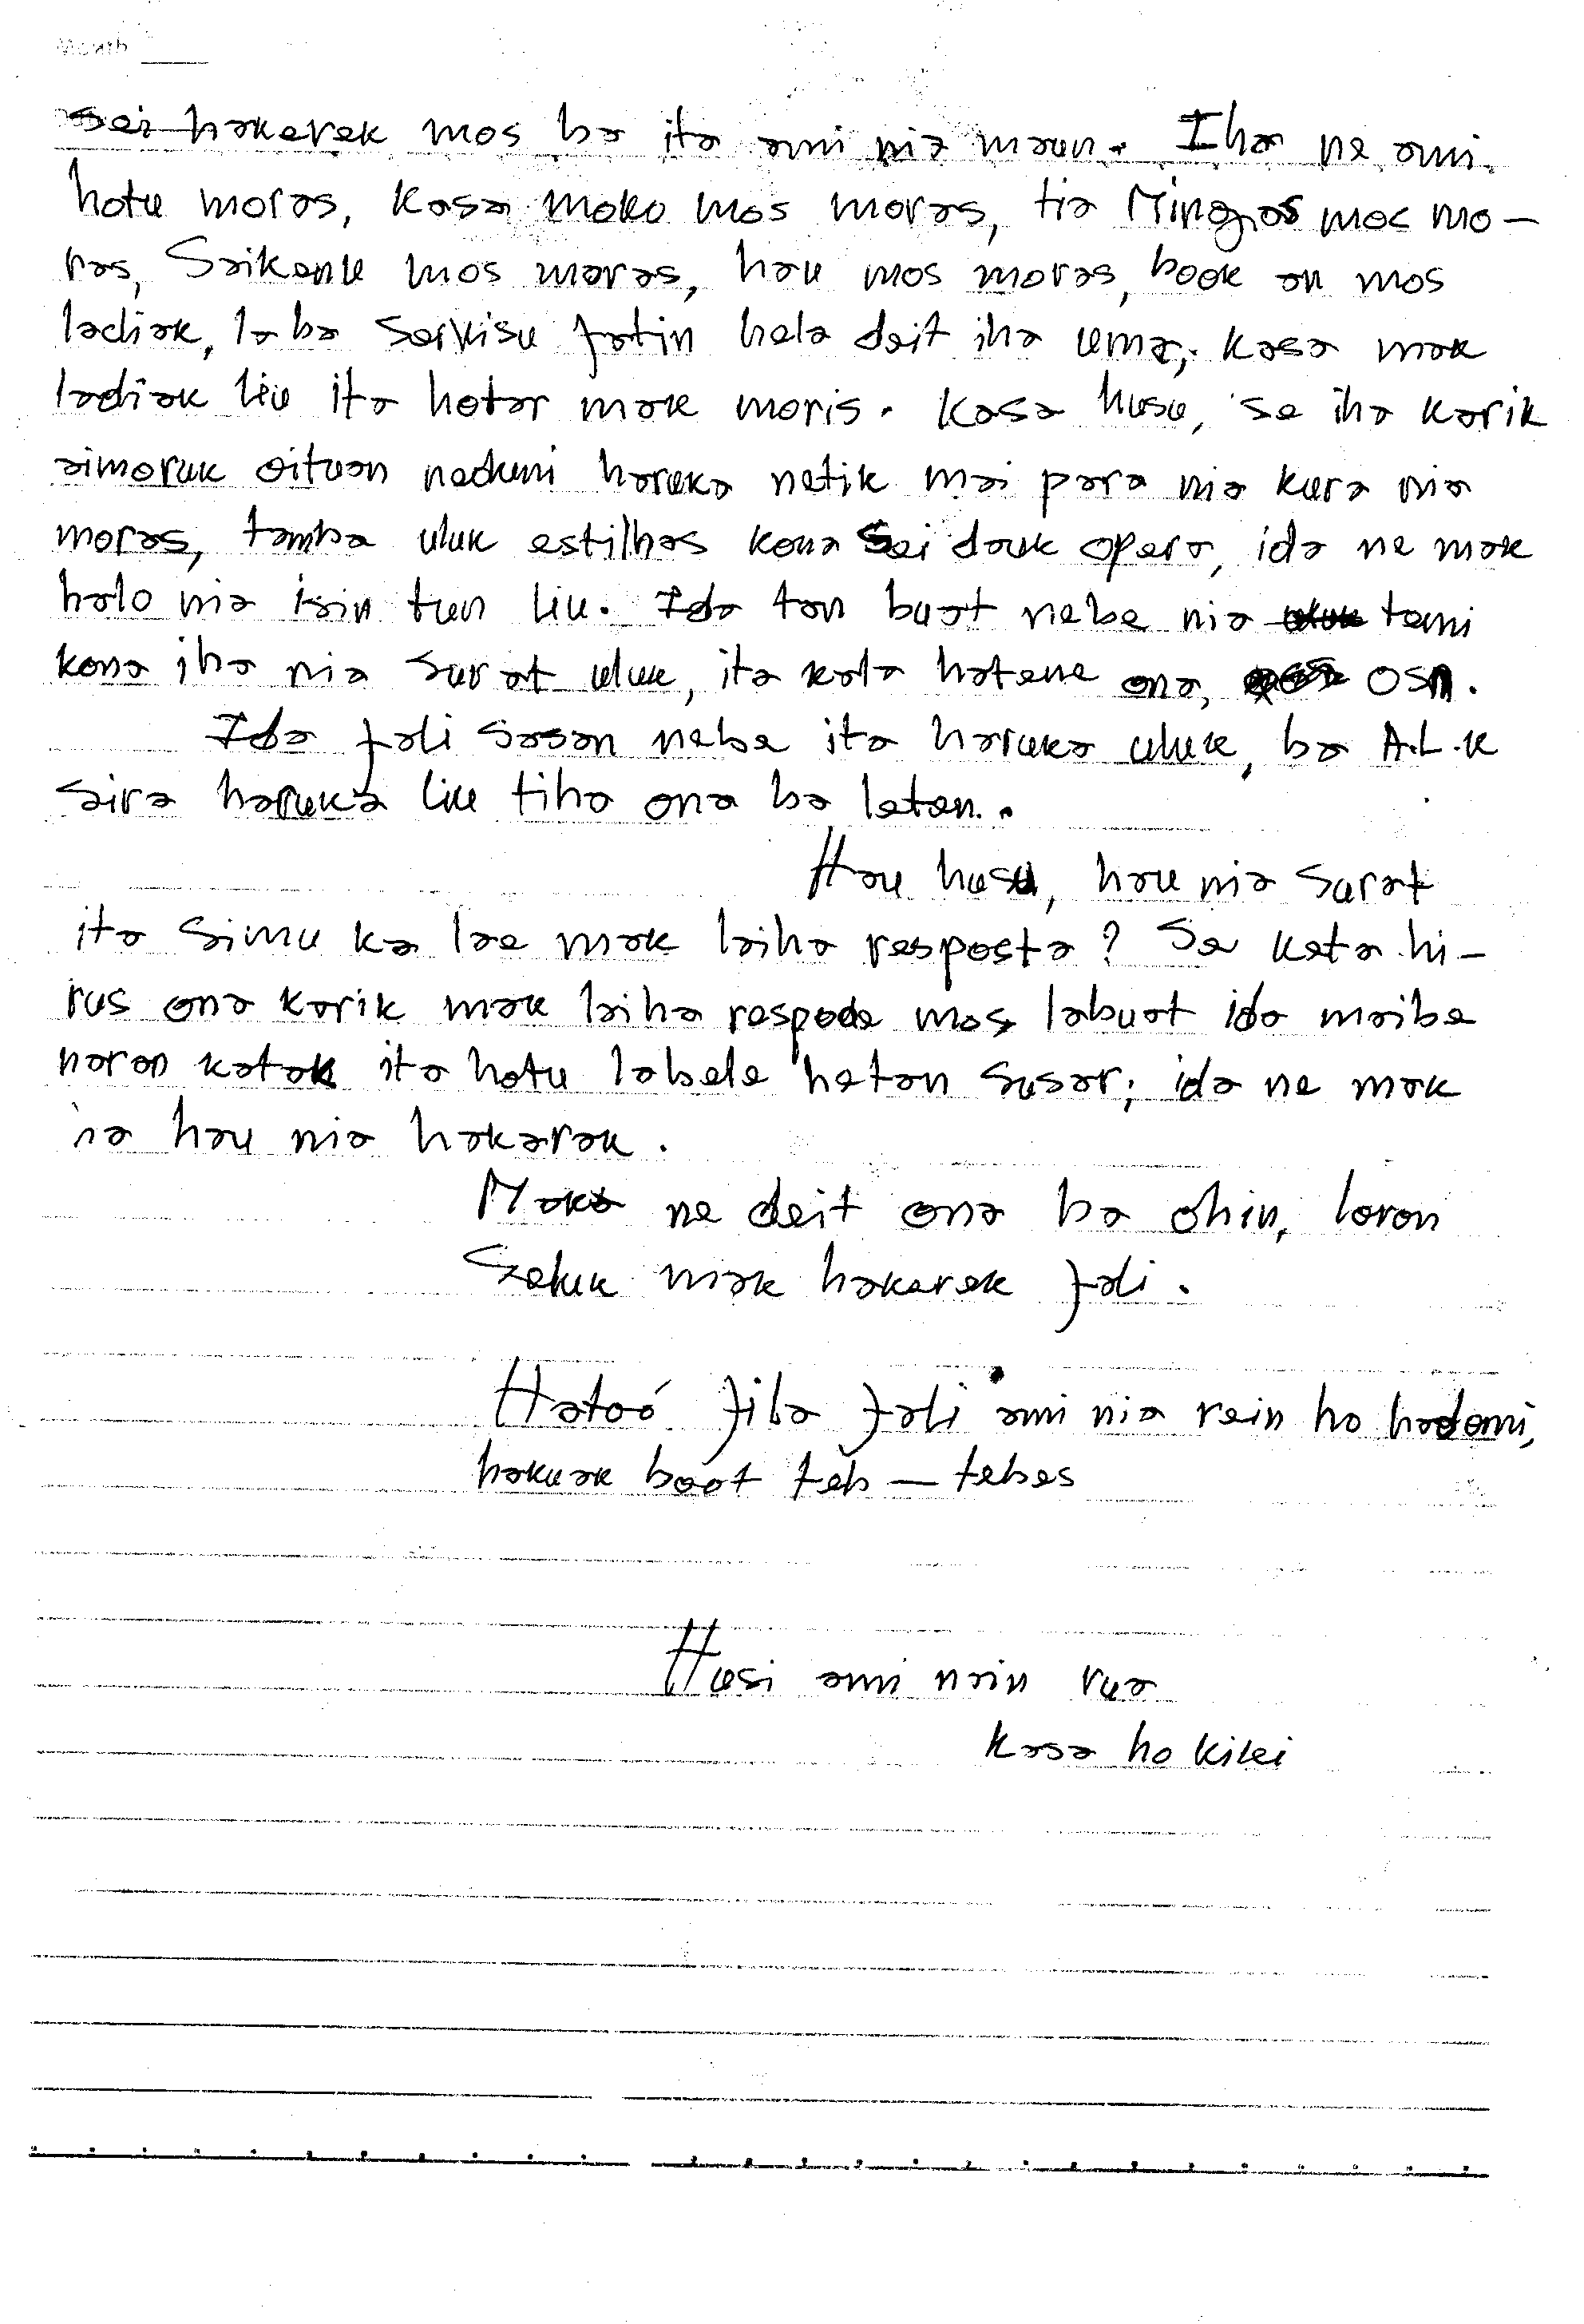 Month
sei hakerek mos ba ita ami nia maun. Iha ne ami
hotu moras, Kasa moko mos moras, tia Mingas mos mo-
ras, Saikanu mos moras, hau mos moras, book an mos
ladiak, la ba servisu fatin hela deit iha uma; Kasa mak
ladiak liu ita hotar mak moris. Kasa husu, se iha karik
aimoruk oituan neduni haruka netik mai para nia kura nia
moras, tamba uluk estilhas kona sei dauk opera, ida ne mak
halo nia isin tun liu. Ida tan buat nebe nia temi
kona iha nia surat uluk, ita kala hatene ona, osn.
Ida fali sasan nebe ita haruka uluk, ba A.L.K
sira haruka liu tiha ona ba leten.
Hau husu, hau nia surat
ita simu ka lae mak laiha resposta? Se keta hi-
rus ona karik mak laiha respode mos labuat ida maibe
naran katak ita hotu labele hetan susar; ida ne mak
hau nia hakarak.
Maka ne deit ona ba ohin, loron
seluk mak hakerek fali.
Hatoó fiba fali ami nia rein ho hadomi,
hakuak boót teb-tebes
Husi ami nain rua
Kasa ho kikei